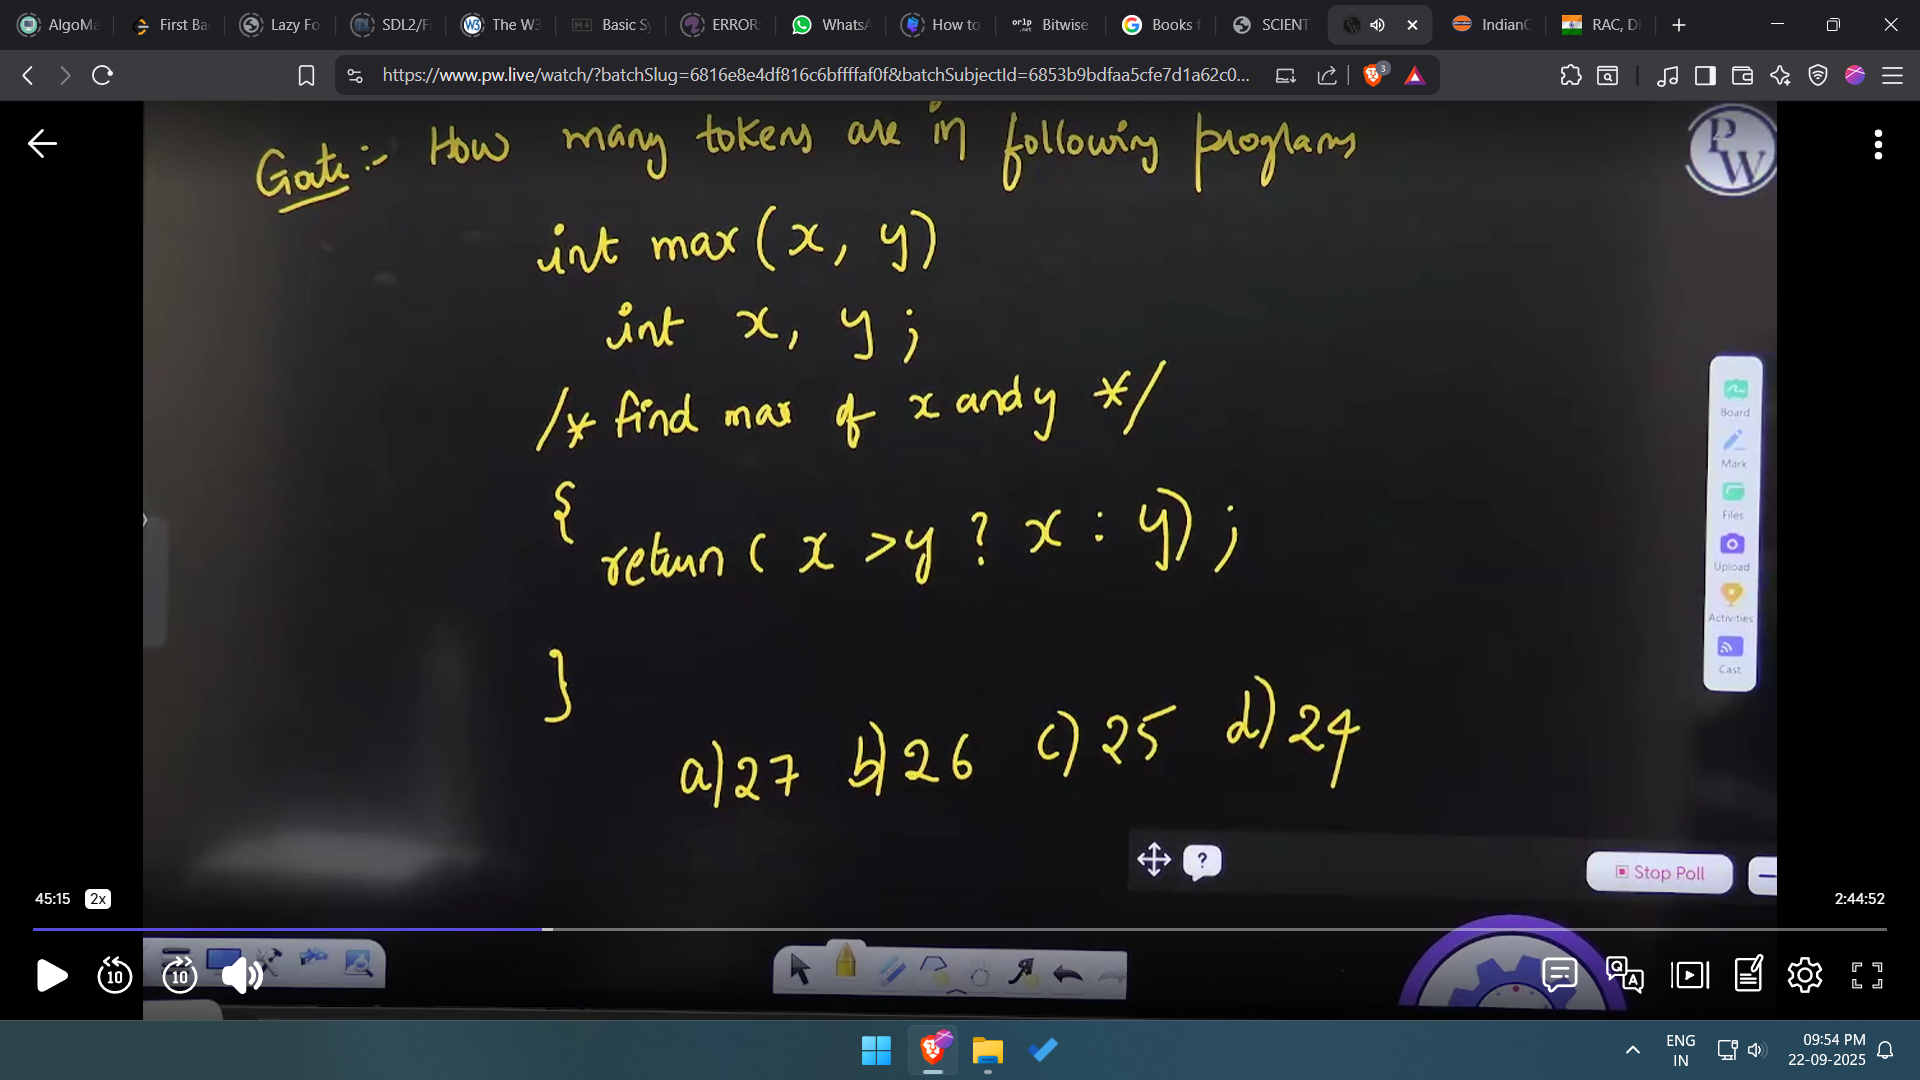 AlgoMa
First Ba
Lazy Fo
SDL2/F
The W3
Basic Sy
ERROR:
WhatsA
How to
orlp .net
Bitwise
Books f
SCIENT
IndianC
RAC, D
https://www.pw.live/watch/?batchSlug=6816e8e4df816c6bffffaf0f&batchSubjectId=6853b9bdfaa5cfe7d1a62c0...
3
Gate :- How many tokens are in following programs
PW
int max (x, y)
int x, y ;
/* find max of x and y */
{
return ( x > y ? x : y) ;
}
a) 27 b) 26 c) 25 d) 24
Board
Mark
Files
Upload
Activities
Cast
Stop Poll
45:15 2x
2:44:52
10
10
ENG
IN
09:54 PM
22-09-2025